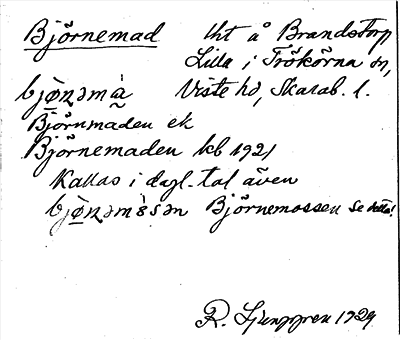 Björnemad tht å Brandstorp
Lilla i Trökörna sn,
bjø̀ṇəmà Viste hd, Skarab. l.
Björnmaden ek
Björnemaden kb 1921
Kallas i dagl. tal även
bjø̀ṇəmòsən Björnemossen se detta!
R. Ljunggren 1929